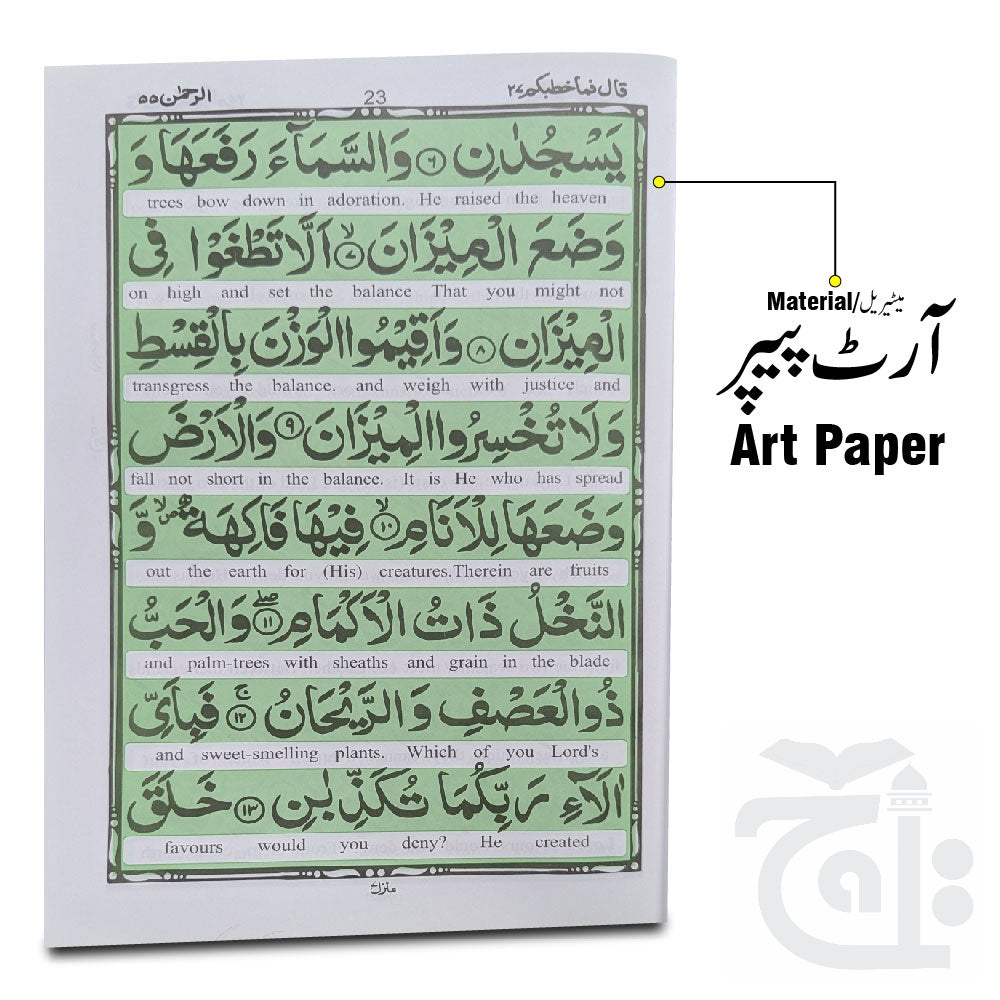 قال فما خطبكم ٢٧ 23 الرحمٰن ٥٥
يَسْجُدٰنِ ۝٦ وَالسَّمَآءَ رَفَعَهَا وَ
trees bow down in adoration. He raised the heaven
وَضَعَ الْمِيْزَانَ ۝٧ۙ اَلَّا تَطْغَوْا فِى
on high and set the balance That you might not
الْمِيْزَانِ ۝٨ وَاَقِيْمُوا الْوَزْنَ بِالْقِسْطِ
transgress the balance. and weigh with justice and
وَلَا تُخْسِرُوا الْمِيْزَانَ ۝٩ وَالْاَرْضَ
fall not short in the balance. It is He who has spread
وَضَعَهَا لِلْاَنَامِ ۝١٠ۙ فِيْهَا فَاكِهَةٌ وَّ
out the earth for (His) creatures.Therein are fruits
النَّخْلُ ذَاتُ الْاَكْمَامِ ۝١١ۖ وَالْحَبُّ
and palm-trees with sheaths and grain in the blade
ذُو الْعَصْفِ وَالرَّيْحَانُ ۝١٢ۚ فَبِاَىِّ
and sweet-smelling plants. Which of you Lord's
اٰلَآءِ رَبِّكُمَا تُكَذِّبٰنِ ۝١٣ خَلَقَ
favours would you deny? He created
Material/میٹیریل
آرٹ پیپر
Art Paper